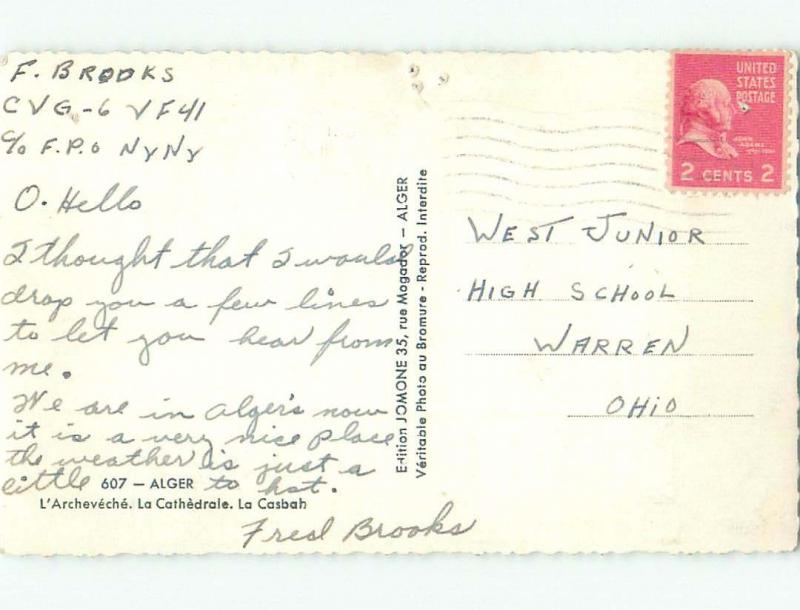 F. BROOKS
CVG-6 VF41
C/o F.P.O NY NY
O. Hello
I thought that I would
drop you a few lines
to let you hear from
me.
We are in Alger's now
it is a very nice place
the weather is just a
little to hot.
607 – ALGER
L'Archevéché. La Cathèdrale. La Casbah
Fred Brooks
Edition JOMONE 35, rue Mogador – ALGER
Véritable Photo au Bromure - Reprod. Interdite
UNITED
STATES
POSTAGE
JOHN
ADAMS
2 CENTS 2
WEST JUNIOR
HIGH SCHOOL
WARREN
OHIO